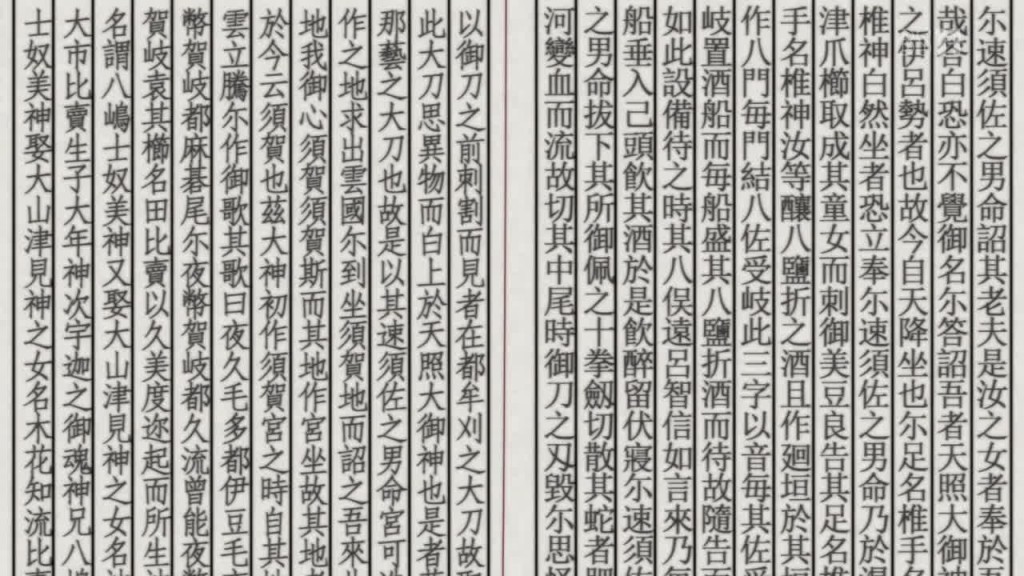 尓速須佐之男命詔其老夫是汝之女者奉於吾
哉答白恐亦不覺御名尓答詔吾者天照大御神
之伊呂勢者也故今自天降坐也尓足名椎手名
椎神白然坐者恐立奉尓速須佐之男命乃於湯
津爪櫛取成其童女而刺御美豆良告其足名椎
手名椎神汝等釀八鹽折之酒且作廻垣於其垣
作八門毎門結八佐受岐此三字以音毎其佐受
岐置酒船而毎船盛其八鹽折酒而待故隨告而
如此設備待之時其八俣遠呂智信如言來乃毎
船垂入己頭飲其酒於是飲醉留伏寢尓速須佐
之男命拔下其所御佩之十拳劔切散其蛇者肥
河變血而流故切其中尾時御刀之刄毀尓思怪
以御刀之前刺割而見者在都牟刈之大刀故取
此大刀思異物而白上於天照大御神也是者草
那藝之大刀也故是以其速須佐之男命宮可造
作之地求出雲國尓到坐須賀地而詔之吾來此
地我御心須賀須賀斯而其地作宮坐故其地者
於今云須賀也茲大神初作須賀宮之時自其地
雲立騰尓作御歌其歌曰夜久毛多都伊豆毛夜
幣賀岐都麻碁尾尓夜幣賀岐都久流曽能夜幣
賀岐袁其櫛名田比賣以久美度迩起而所生
名謂八嶋士奴美神又娶大山津見神之女名神
大市比賣生子大年神次宇迦之御魂神兄八嶋
士奴美神娶大山津見神之女名木花知流比